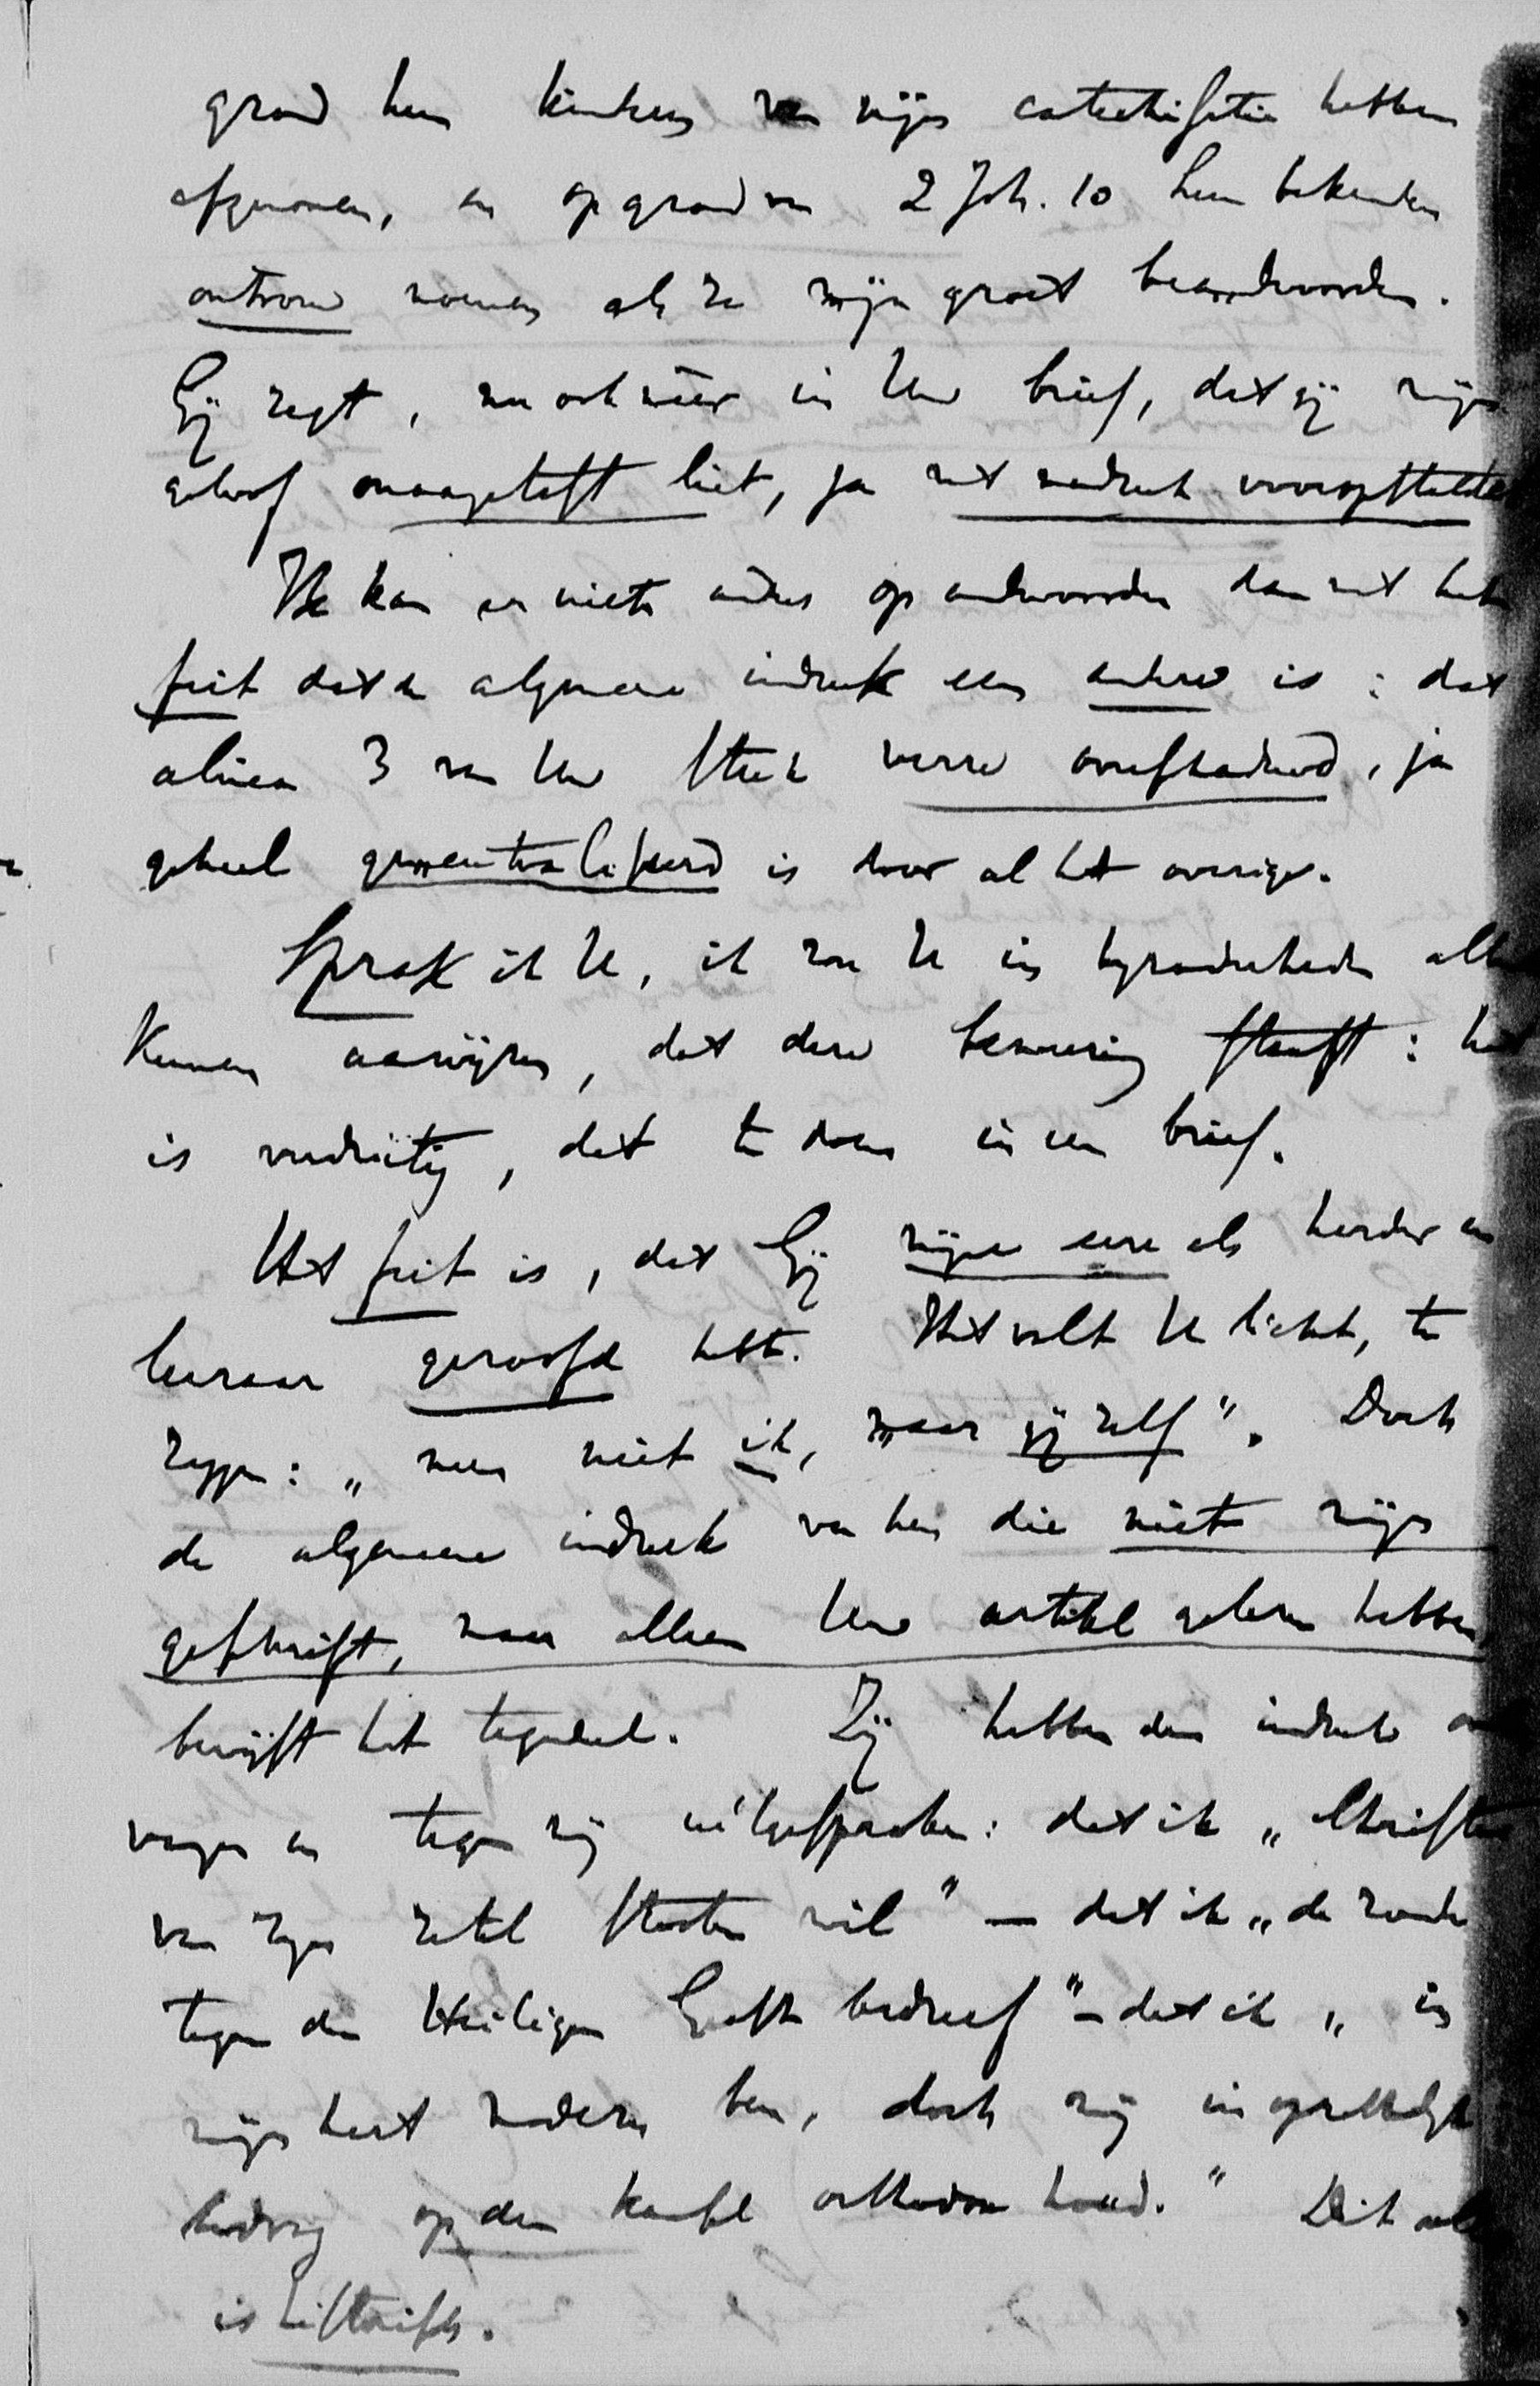 grond hun kinderen van mijn catechisatie hebben
afgenomen, en op grond van 2 Joh. 10 hun bekenden
ontrouw noemen als ze mijn groet beantwoorden.
Gij zegt, nu ook weer in Uw brief, dat gij mijn
geloof onaangetast liet, ja met nadruk vooropstelde
Ik kan er niets anders op antwoorden dan met het
feit dat de algemeene indruk een andere is : dat
alinea 3 van Uw stuk verre overschaduwd, ja
geheel geneutraliseerd is door al het overige.
Sprak ik U, ik zou U in bijzonderheden alles
kunnen aanwijzen, dat deze bewering staaft : het
is verdrietig, dat te doen in een brief.
Het feit is, dat Gij mijne eere als herder en
leeraar geroofd hebt. Het valt U licht, te
zeggen : „ neen niet ik, maar gij zelf ". Doch
de algemeene indruk van hen die niet mijn
geschrift, maar alleen Uw artikel gelezen hebben
bewijst het tegendeel. Zij hebben dien indruk
en tegen mij uitgesproken : dat ik „ Christus
van zijn zetel stooten wil " — dat ik „ de zonde
tegen den Heiligen Geest bedreef " — dat ik „ in
mijn hart modern ben, doch mij
op den kansel orthodox houd. " Dit alles
is historisch.